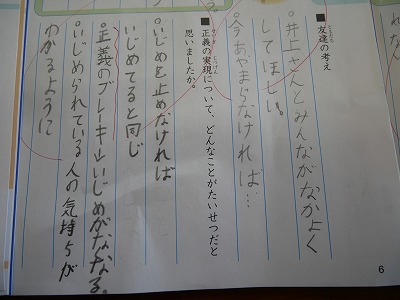 ■友達の考え
・井上さんとみんながなかよく
してほしい。
・今あやまらなければ…
■正義の実現について、どんなことがたいせつだと
思いましたか。
・いじめを止めなければ
いじめてると同じ
・正義のブレーキ↓いじめがなくなる。
・いじめられている人の気持ちが
わかるように
6